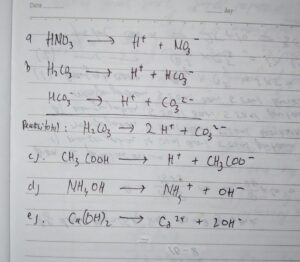 Date
day
a HNO₃ ⟶ H⁺ + NO₃⁻
b H₂CO₃ ⟶ H⁺ + HCO₃⁻
HCO₃⁻ ⟶ H⁺ + CO₃²⁻
: H₂CO₃ ⟶ 2 H⁺ + CO₃²⁻
c). CH₃COOH ⟶ H⁺ + CH₃COO⁻
d) NH₄OH ⟶ NH₄⁺ + OH⁻
e). Ca(OH)₂ ⟶ Ca²⁺ + 2OH⁻